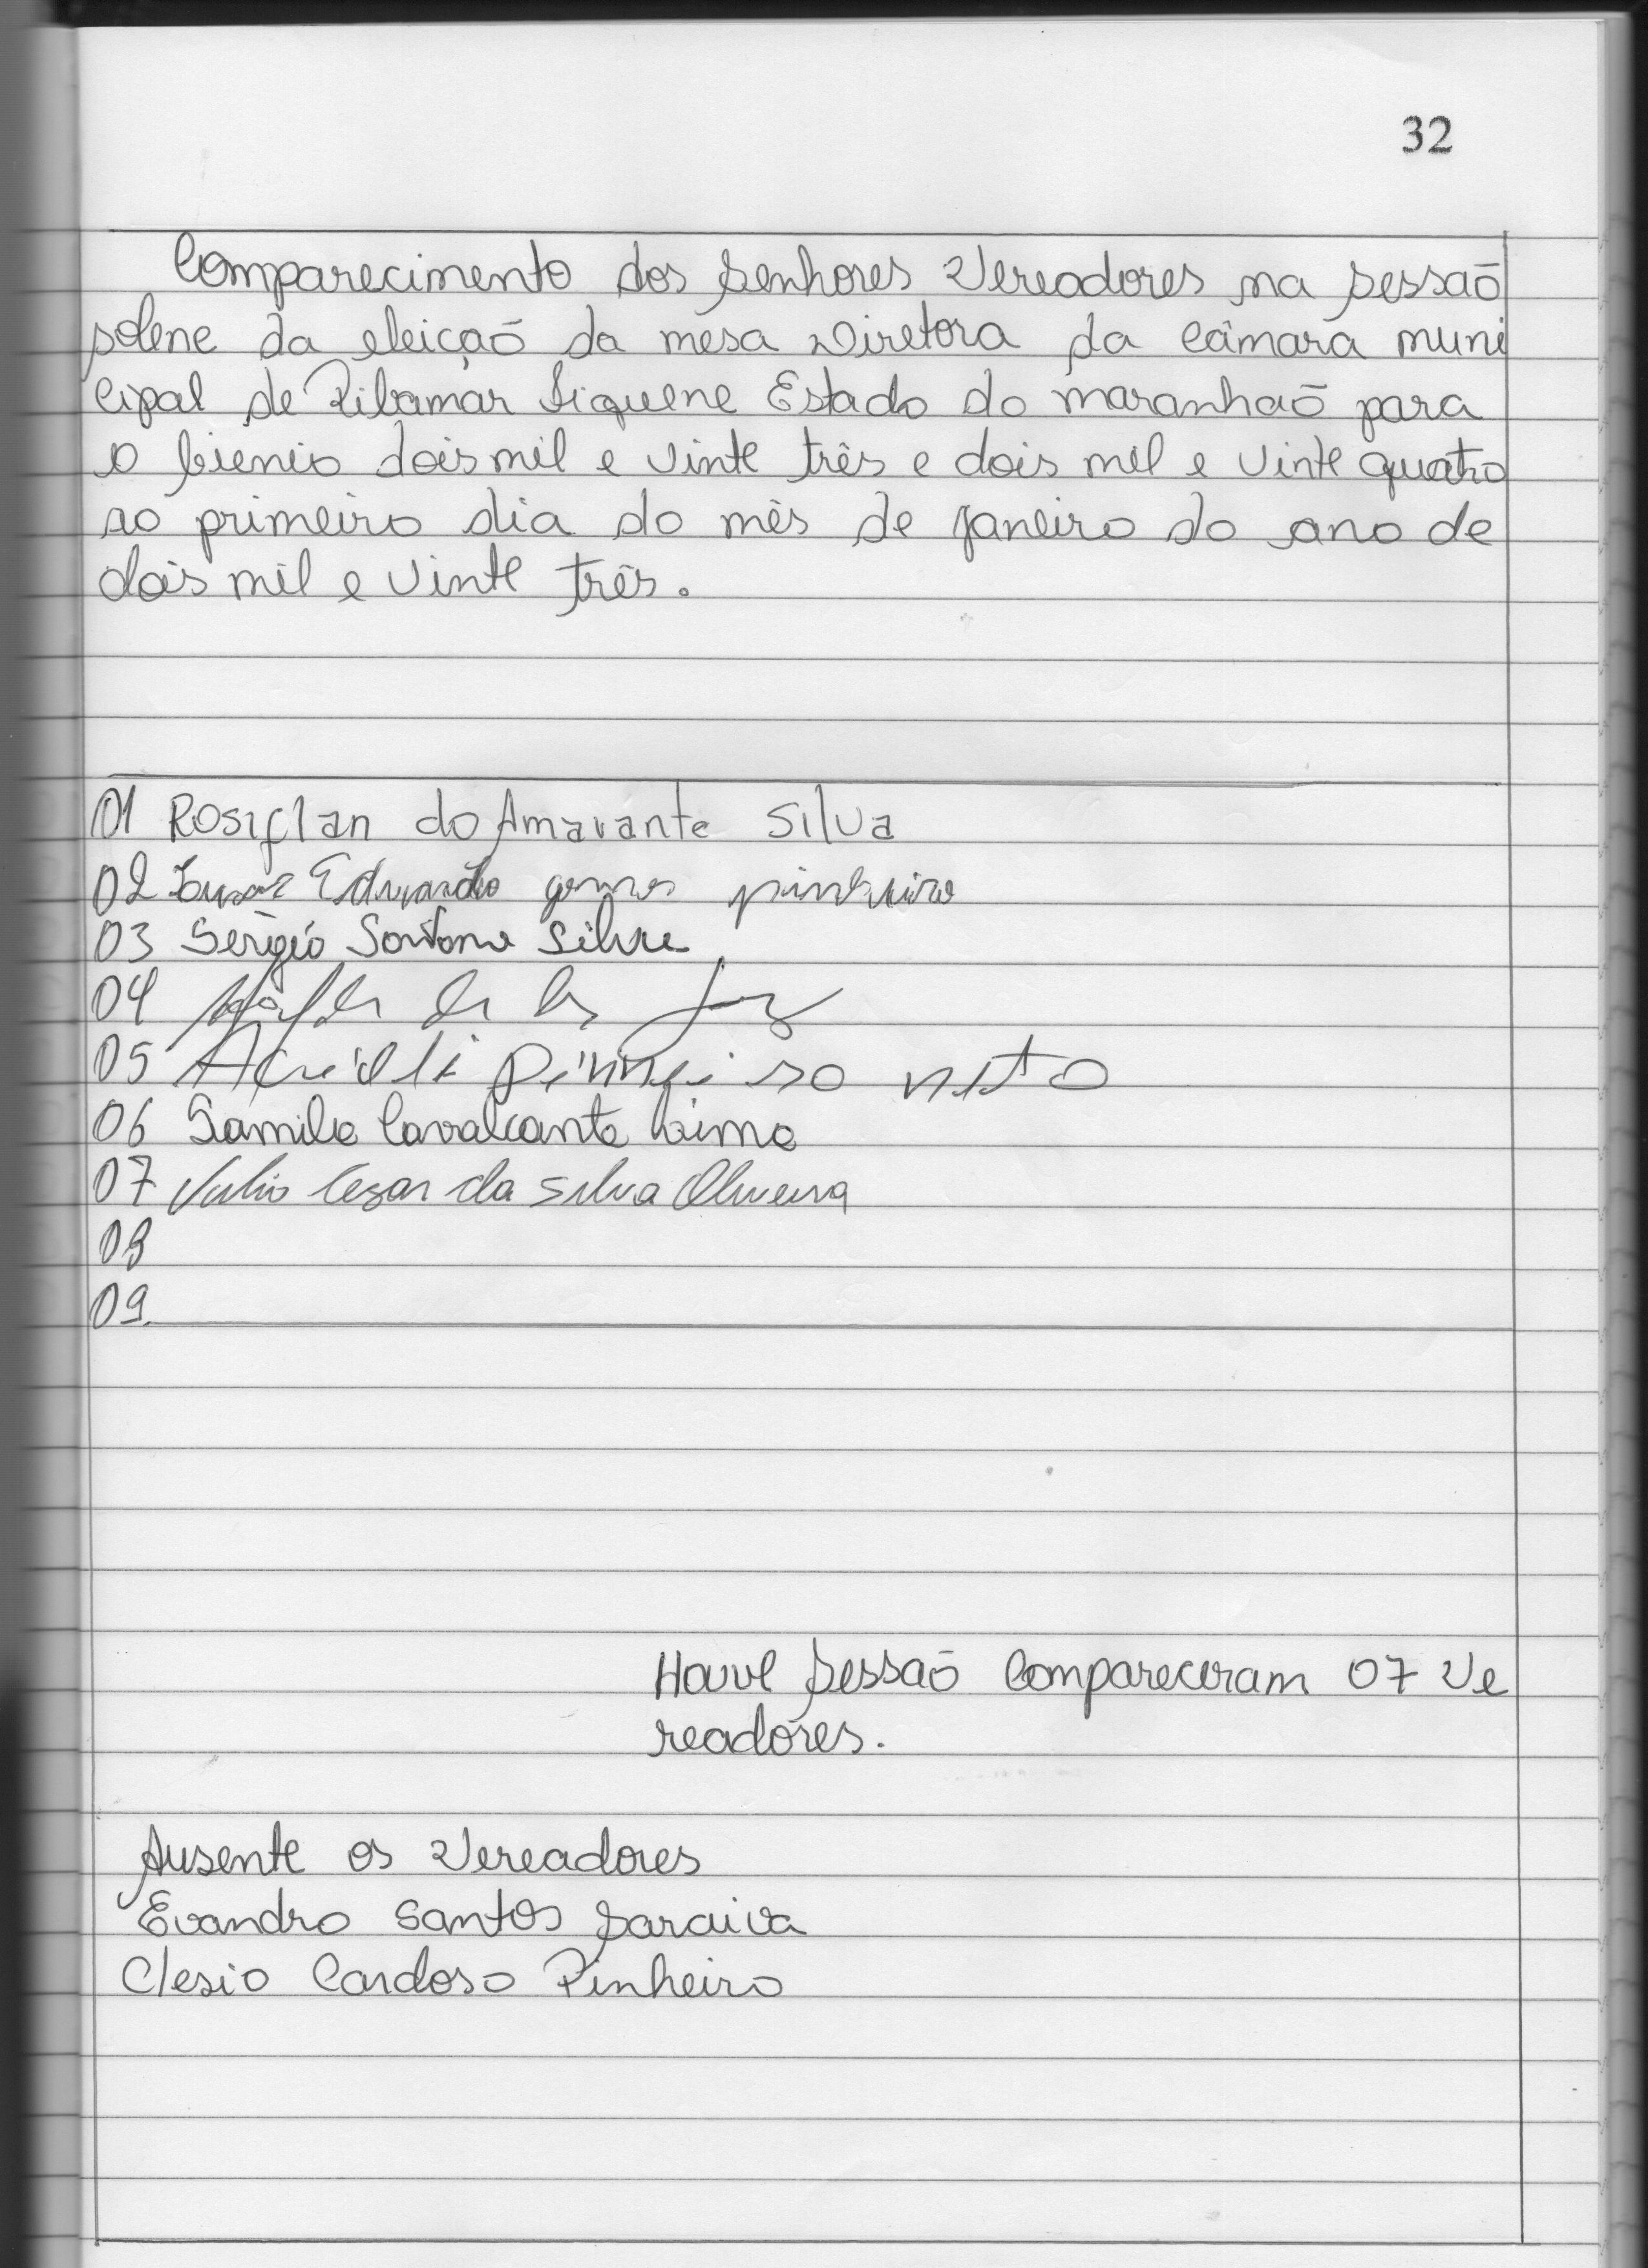 32
Comparecimento dos Senhores Vereadores na Sessão
solene da eleição da mesa Diretora da Câmara muni
cipal de Ribamar Fiquene Estado do maranhão para
o bienio dois mil e vinte três e dois mil e vinte quatro
ao primeiro dia do mês de janeiro do ano de
dois mil e vinte três.
01 Rosiflan do Amarante Silva
02 Eduardo gomes pinheiro
03 Sérgio Santana Silva
04
05 Acrioli pinheiro neto
06 Samila Cavalcante Lima
07 Julio Cezar da Silva Oliveira
08
09.
Houve Sessão Compareceram 07 Ve
readores.
Ausente os Vereadores
Evandro Santos Saraiva
Clesio Cardoso Pinheiro